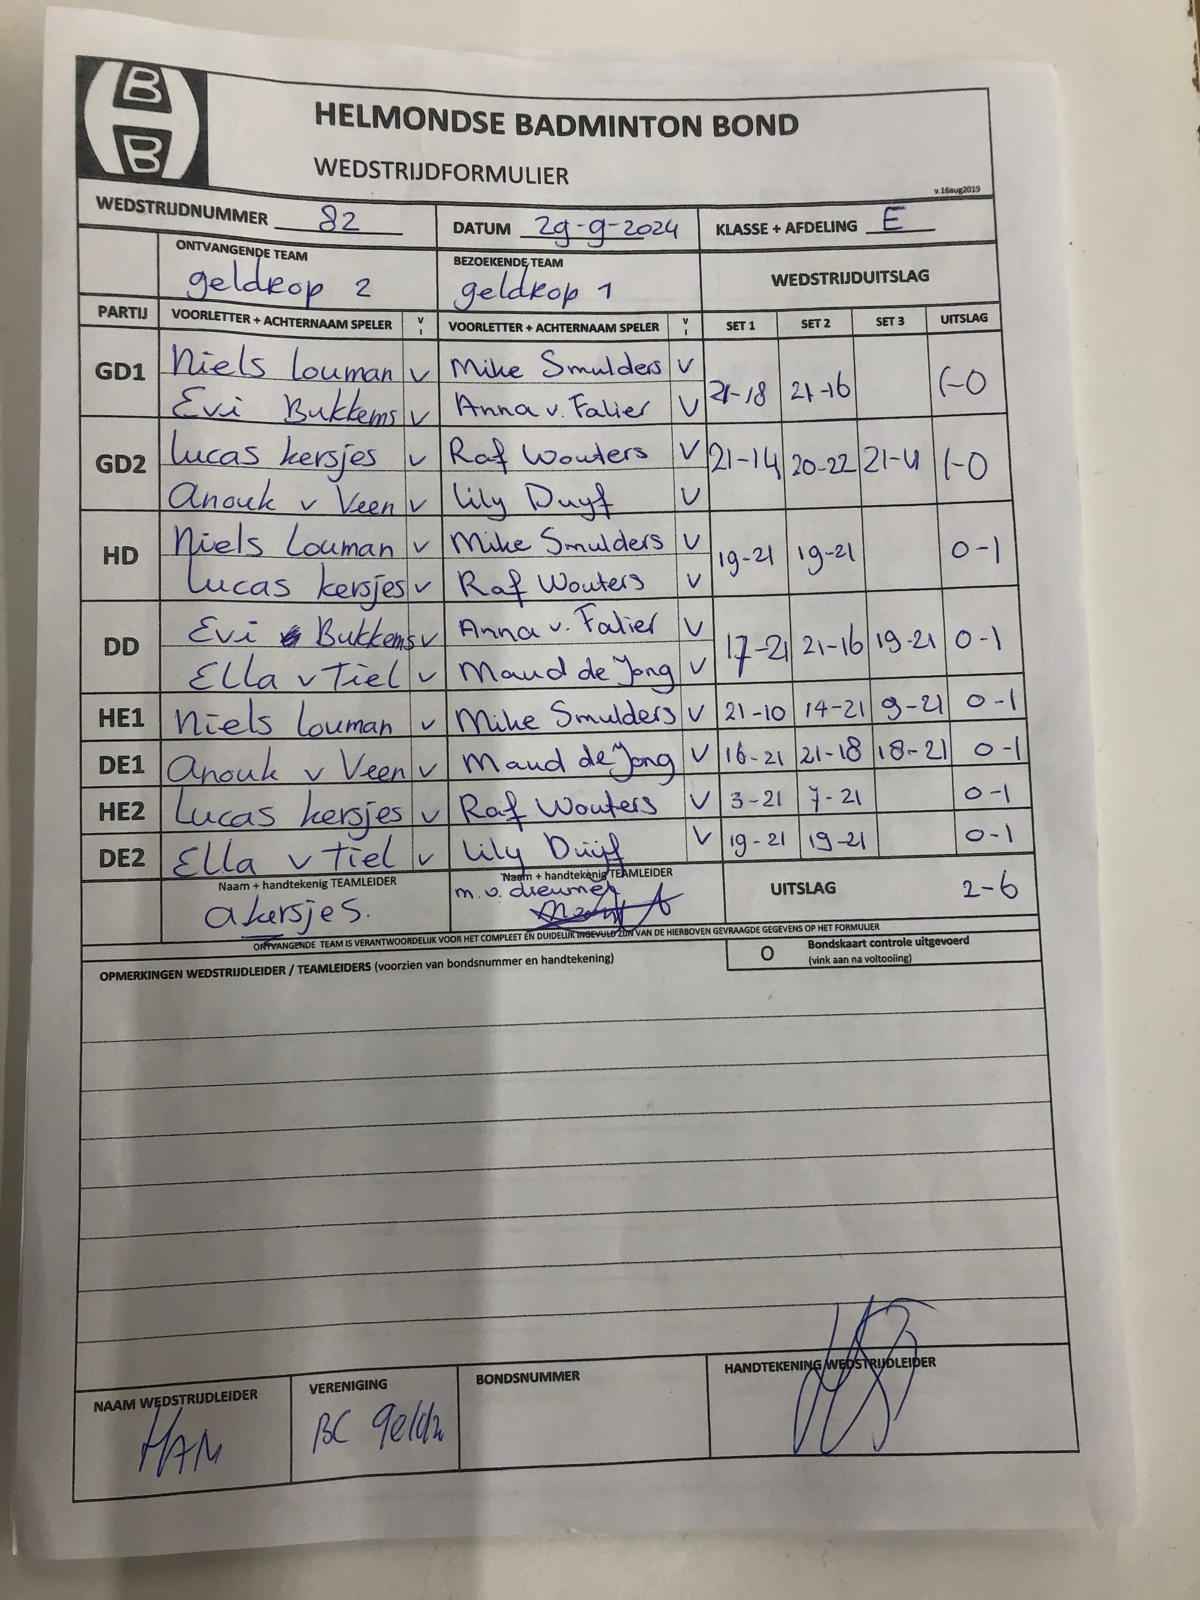 B
B
HELMONDSE BADMINTON BOND
WEDSTRIJDFORMULIER
v.16aug2019
WEDSTRIJDNUMMER 82 DATUM 29-9-2024 KLASSE + AFDELING E
ONTVANGENDE TEAM BEZOEKENDE TEAM WEDSTRIJDUITSLAG
geldrop 2 geldrop 1
PARTIJ VOORLETTER + ACHTERNAAM SPELER V I VOORLETTER + ACHTERNAAM SPELER V I SET 1 SET 2 SET 3 UITSLAG
GD1 Niels Louman v Mike Smulders v 21-18 21-16 1-0
Evi Bukkems v Anna v. Falier v
GD2 Lucas kersjes v Raf Wouters v 21-14 20-22 21-11 1-0
Anouk v Veen v Lily Duyf v
HD Niels Louman v Mike Smulders v 19-21 19-21 0-1
Lucas kersjes v Raf Wouters v
DD Evi Bukkems v Anna v. Falier v 17-21 21-16 19-21 0-1
Ella v Tiel v Maud de Jong v
HE1 Niels Louman v Mike Smulders v 21-10 14-21 9-21 0-1
DE1 Anouk v Veen v Maud de Jong v 16-21 21-18 18-21 0-1
HE2 Lucas kersjes v Raf Wouters v 3-21 7-21 0-1
DE2 Ella v Tiel v Lily Duijf v 19-21 19-21 0-1
Naam + handtekenig TEAMLEIDER Naam + handtekenig TEAMLEIDER UITSLAG 2-6
a kersjes. m. v.
ONTVANGENDE TEAM IS VERANTWOORDELIJK VOOR HET COMPLEET EN DUIDELIJK INGEVULD ZIJN VAN DE HIERBOVEN GEVRAAGDE GEGEVENS OP HET FORMULIER
OPMERKINGEN WEDSTRIJDLEIDER / TEAMLEIDERS (voorzien van bondsnummer en handtekening) O Bondskaart controle uitgevoerd
(vink aan na voltooiing)
NAAM WEDSTRIJDLEIDER VERENIGING BONDSNUMMER HANDTEKENING WEDSTRIJDLEIDER
HAN BC